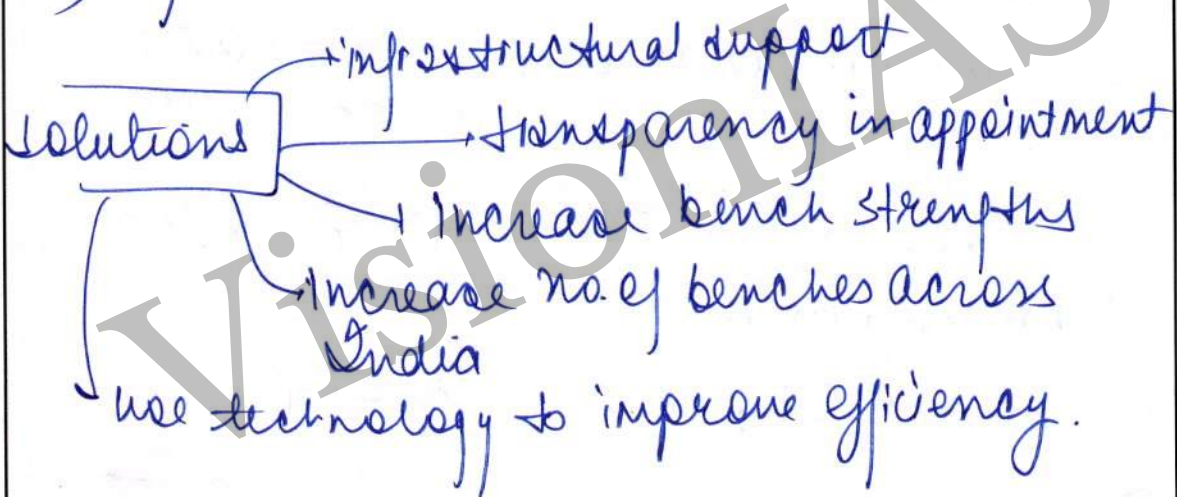 solutions
infrastructural support
transparency in appointment
increase bench strengths
increase no. of benches across
India
use technology to improve efficiency.
VisionIAS